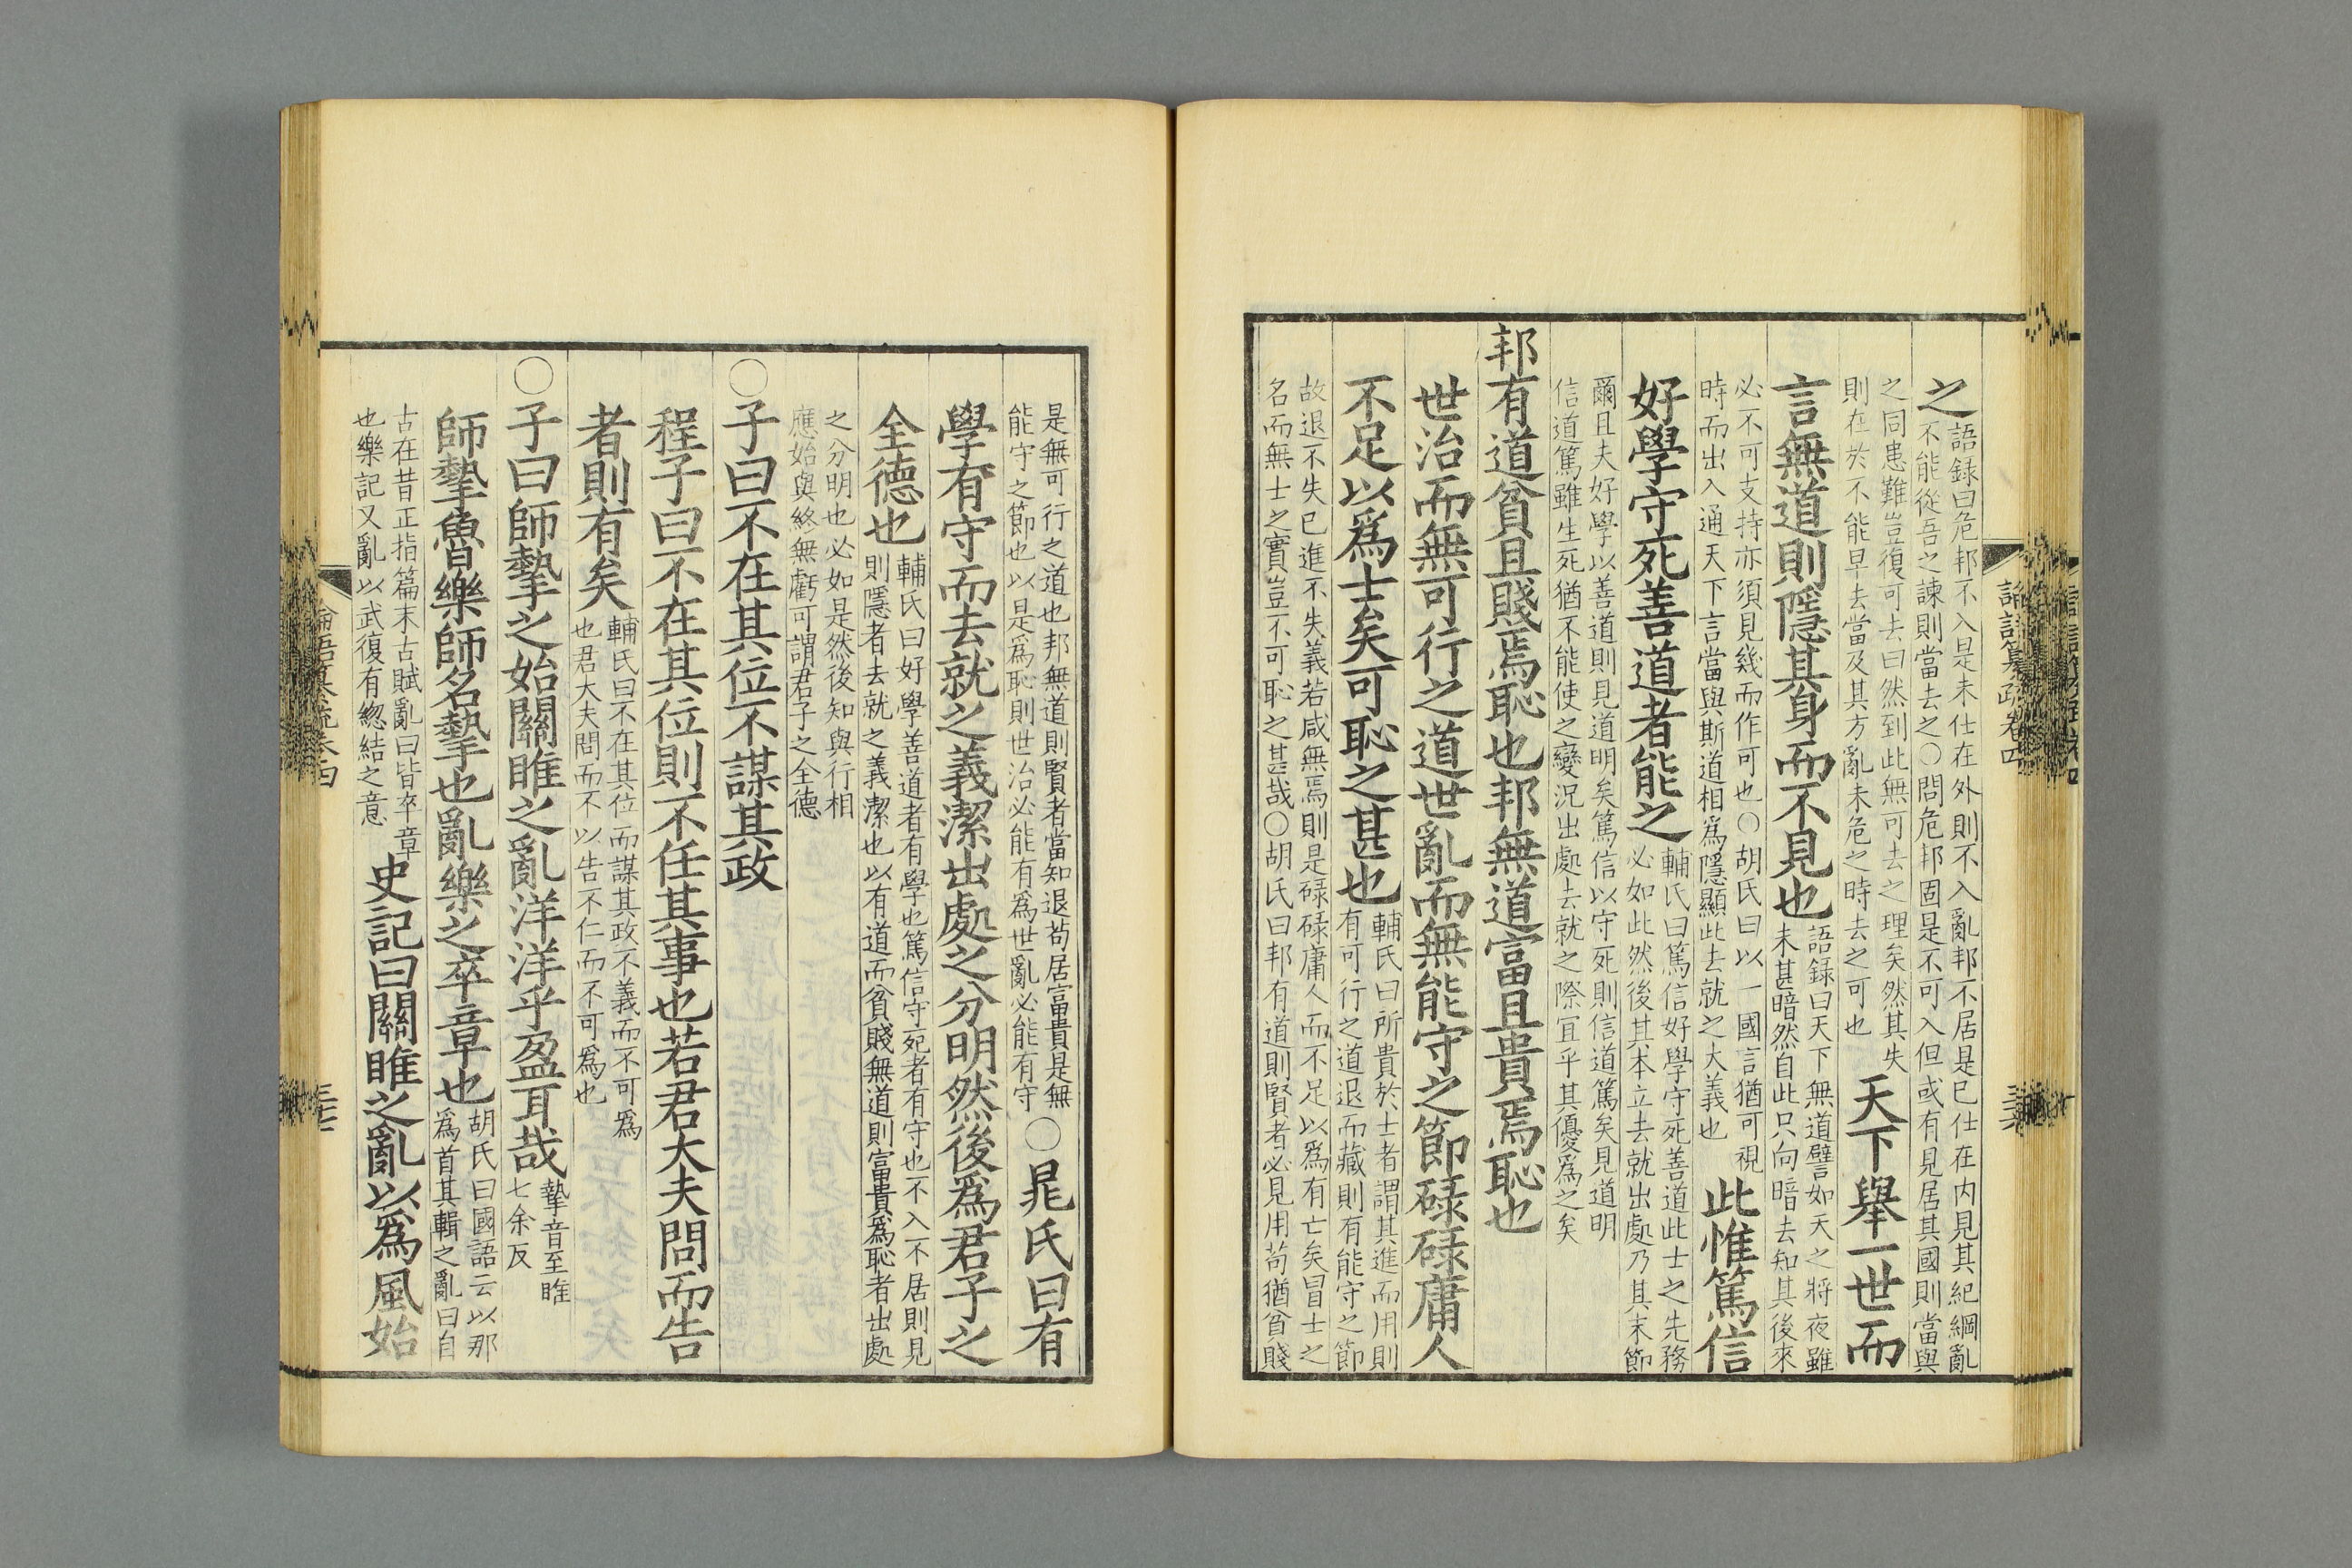 之語録曰危邦不入是未仕在外則不入亂邦不居是已仕在内見其紀綱亂
不能從吾之諫則當去之○問危邦固是不可入但或有見居其國則當與
之同患難豈復可去曰然到此無可去之理矣然其失
則在於不能早去當及其方亂未危之時去之可也天下舉一世而
言無道則隱其身而不見也語録曰天下無道譬如天之將夜雖
未甚暗然自此只向暗去知其後來
必不可支持亦須見幾而作可也○胡氏曰以一國言猶可視
時而出入通天下言當與斯道相爲隱顯此去就之大義也此惟篤信
好學守死善道者能之輔氏曰篤信好學守死善道此士之先務
必如此然後其本立去就出處乃其末節
爾且夫好學以善道則見道明矣篤信以守死則信道篤矣見道明
信道篤雖生死猶不能使之變況出處去就之際宜乎其優爲之矣
邦有道貧且賤焉恥也邦無道富且貴焉恥也
世治而無可行之道世亂而無能守之節碌碌庸人
不足以爲士矣可恥之甚也輔氏曰所貴於士者謂其進而用則
有可行之道退而藏則有能守之節
故退不失已進不失義若咸無焉則是碌碌庸人而不足以爲有亡矣冒士之
名而無士之實豈不可恥之甚哉○胡氏曰邦有道則賢者必見用苟猶貧賤
論語纂疏卷四
三十六
是無可行之道也邦無道則賢者當知退苟居富貴是無
能守之節也以是爲恥則世治必能有爲世亂必能有守○晁氏曰有
學有守而去就之義潔出處之分明然後爲君子之
全德也輔氏曰好學善道者有學也篤信守死者有守也不入不居則見
則隱者去就之義潔也以有道而貧賤無道則富貴爲恥者出處
之分明也必如是然後知與行相
應始與終無虧可謂君子之全德
○子曰不在其位不謀其政
程子曰不在其位則不任其事也若君大夫問而告
者則有矣輔氏曰不在其位而謀其政不義而不可爲
也君大夫問而不以告不仁而不可爲也
○子曰師摯之始關雎之亂洋洋乎盈耳哉摯音至雎
七余反
師摯魯樂師名摯也亂樂之卒章也胡氏曰國語云以那
爲首其輯之亂曰自
古在昔正指篇末古賦亂曰皆卒章
也樂記又亂以武復有總結之意史記曰關雎之亂以爲風始
論語纂疏卷四
三十七